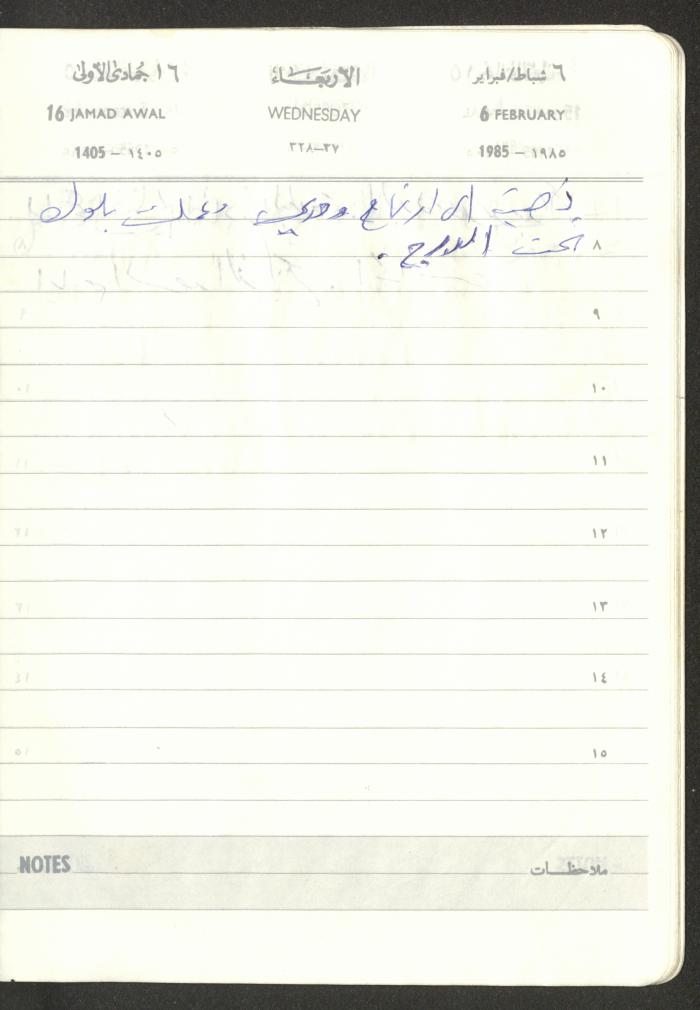 ٦ شباط/فبراير الأربعاء ١٦ جمادى الأولى
6 FEBRUARY WEDNESDAY 16 JAMAD AWAL
1985 – ١٩٨٥ ٣٢٨–٣٧ 1405 – ١٤٠٥
ذهبت الى ارتفاع وعملت بلوك
٨ تحت المدرج .
٩
١٠
١١
١٢
١٣
١٤
١٥
ملاحظات NOTES